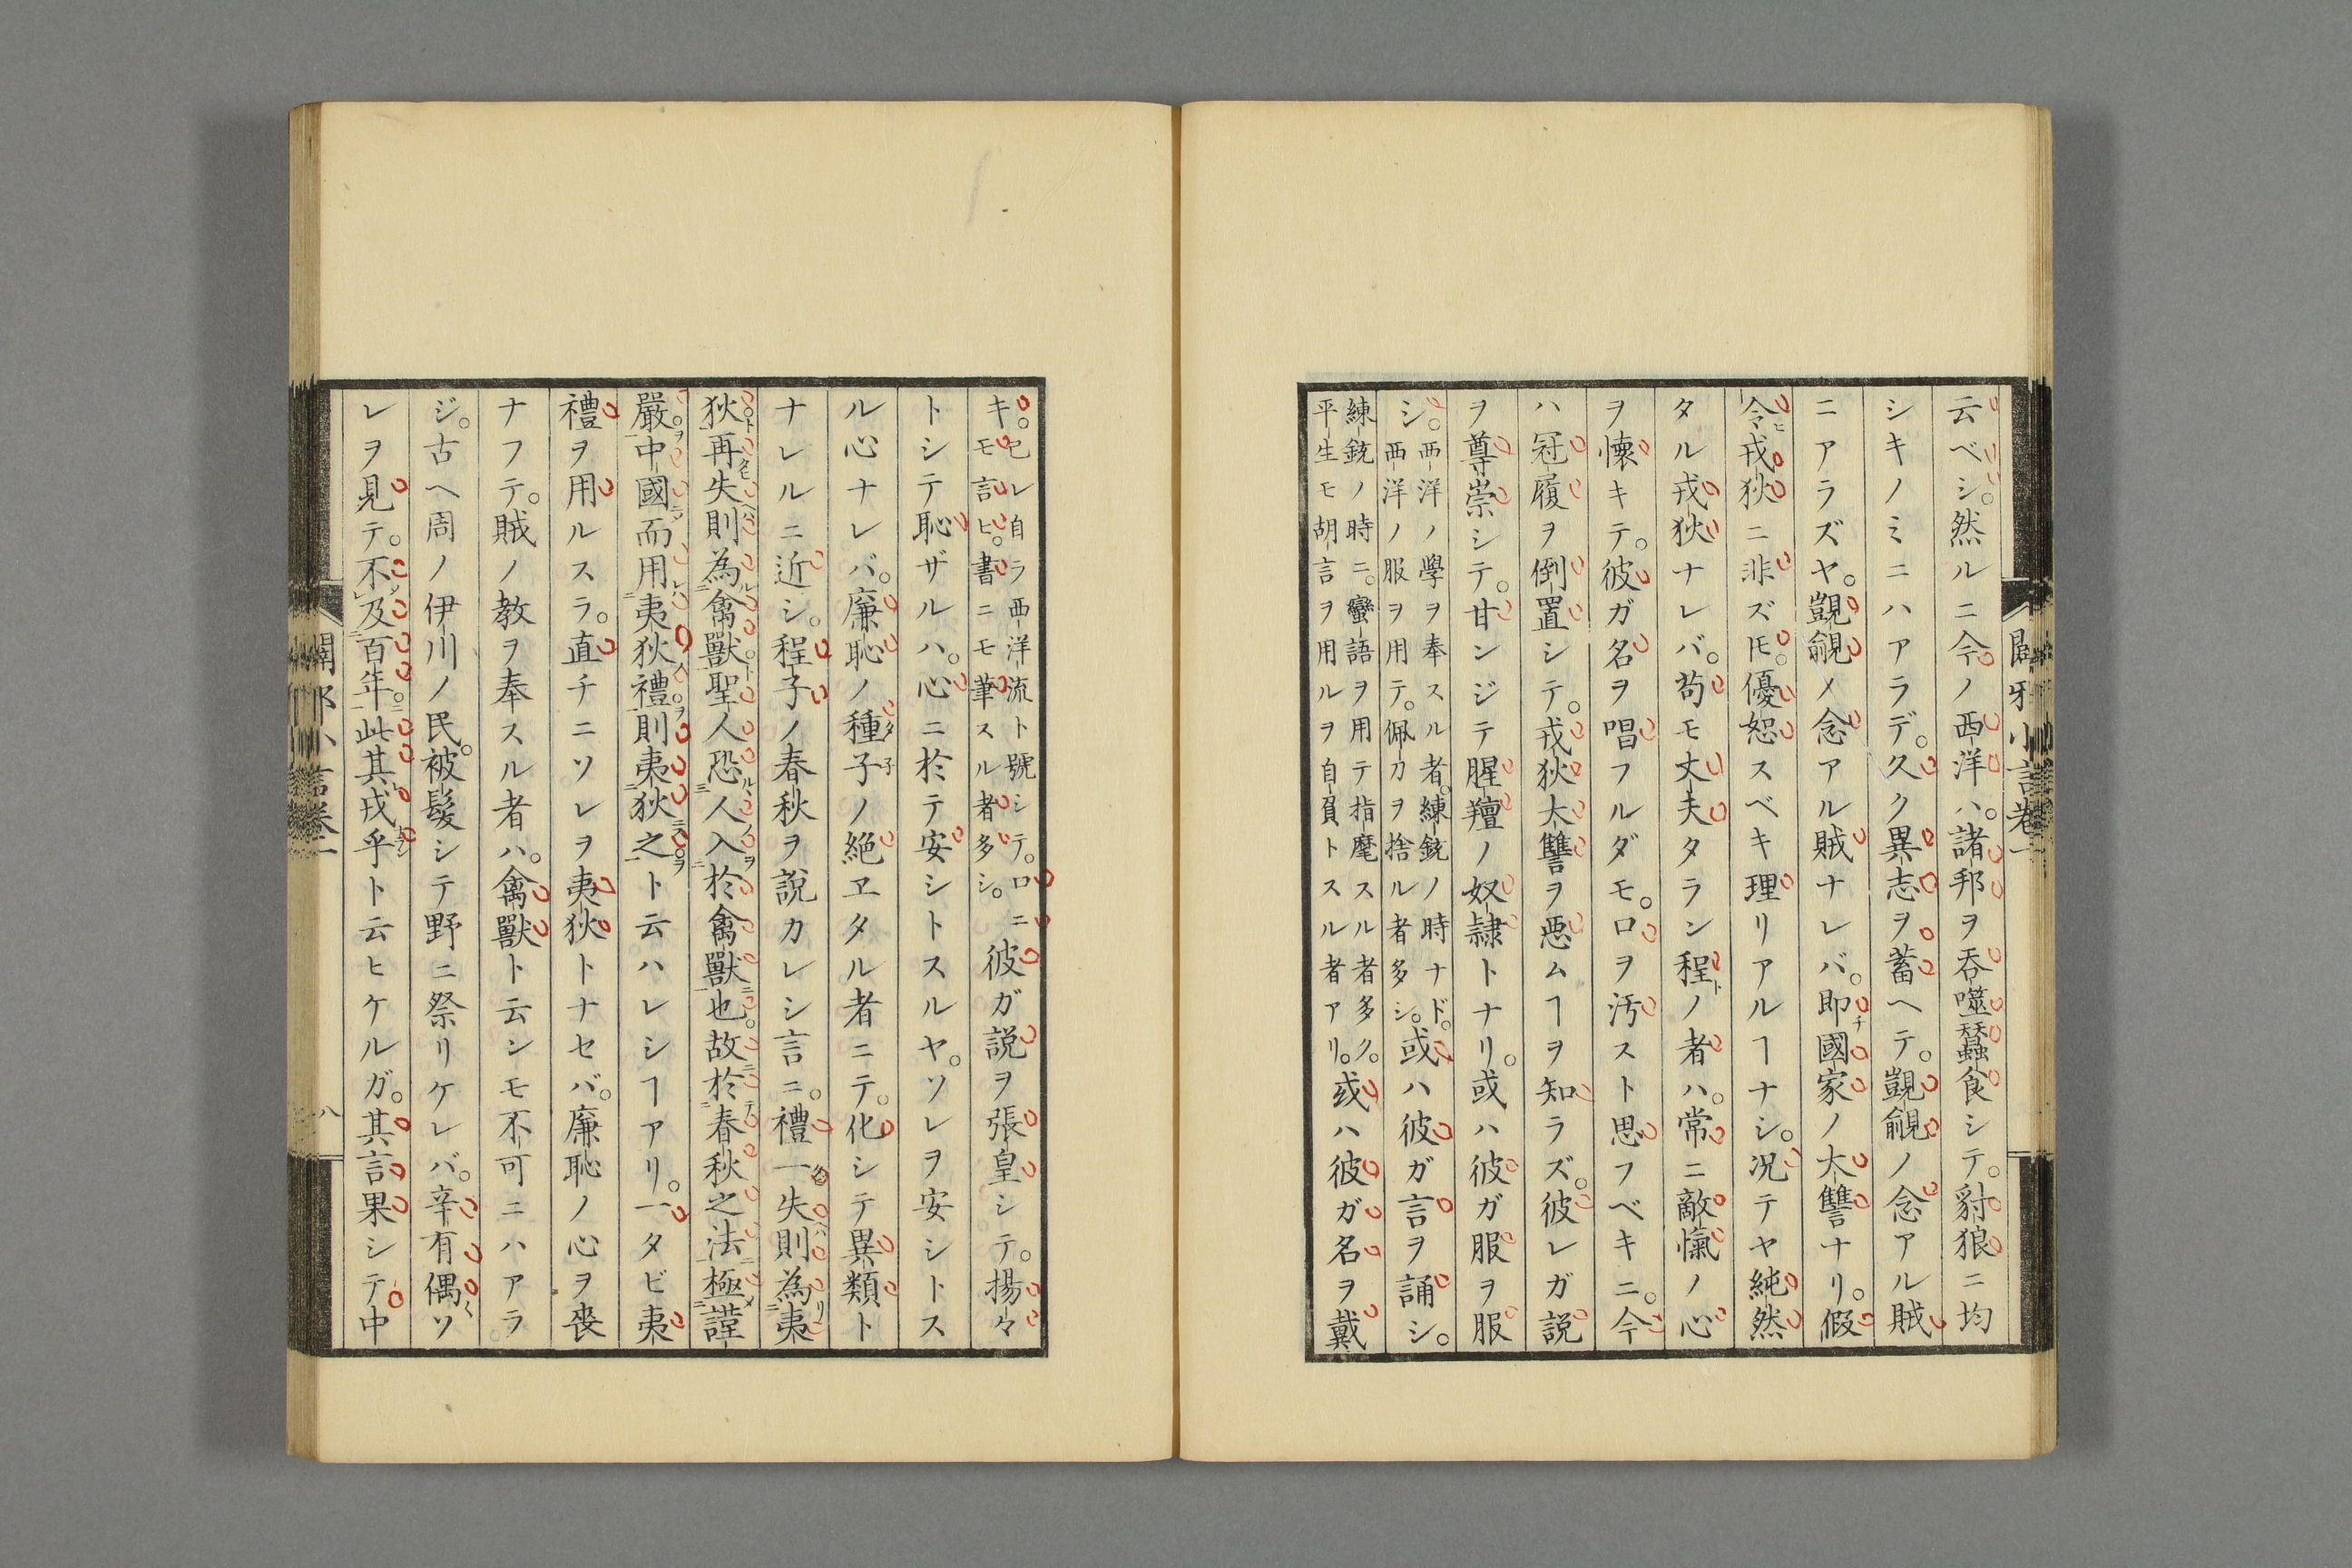 云ベシ。然ルニ今ノ西洋ハ。諸邦ヲ呑噬蠶食シテ。豺狼ニ均
シキノミニハアラデ。久ク異志ヲ蓄ヘテ。覬覦ノ念アル賊
ニアラズヤ。覬覦ノ念アル賊ナレバ。即チ國家ノ大讐ナリ。假
令ヒ戎狄ニ非ズ𪜈。優恕スベキ理リアルヿナシ。况テヤ純然
タル戎狄ナレバ。苟モ丈夫タラン程ノ者ハ。常ニ敵愾ノ心
ヲ懐キテ。彼ガ名ヲ唱フルダモ。口ヲ汚スト思フベキニ。今
ハ冠履ヲ倒置シテ。戎狄大讐ヲ惡ムヿヲ知ラズ。彼レガ説
ヲ尊崇シテ。甘ンジテ腥羶ノ奴隷トナリ。或ハ彼ガ服ヲ服
シ。西洋ノ學ヲ奉スル者。練銃ノ時ナド。西洋ノ服ヲ用テ。佩刀ヲ捨ル者多シ。或ハ彼ガ言ヲ誦シ。
練銃ノ時ニ。蠻語ヲ用テ指麾スル者多ク。平生モ胡言ヲ用ルヲ自負トスル者アリ。或ハ彼ガ名ヲ戴
闢邪小言卷一
キ。已レ自ラ西洋流ト號シテ。口ニモ言ヒ。書ニモ筆スル者多シ。彼ガ説ヲ張皇シテ。揚々
トシテ恥ザルハ。心ニ於テ安シトスルヤ。ソレヲ安シトス
ル心ナレバ。廉恥ノ種子ノ絶ヱタル者ニテ。化シテ異類ト
ナレルニ近シ。程子ノ春秋ヲ説カレシ言ニ。禮一失則為夷
狄。再失則為禽獸。聖人恐人入於禽獸也。故於春秋之法極謹
嚴。中國而用夷狄禮。則夷狄之。ト云ハレシヿアリ。一タビ夷
禮ヲ用ルスラ。直チニソレヲ夷狄トナセバ。廉恥ノ心ヲ喪
ナフテ。賊ノ教ヲ奉スル者ハ。禽獸ト云ンモ不可ニハアラ
ジ。古ヘ周ノ伊川ノ民。被髮シテ野ニ祭リケレバ。辛有偶々ソ
レヲ見テ。不及百年。此其戎乎ト云ヒケルガ。其言果シテ中
闢邪小言卷一
八